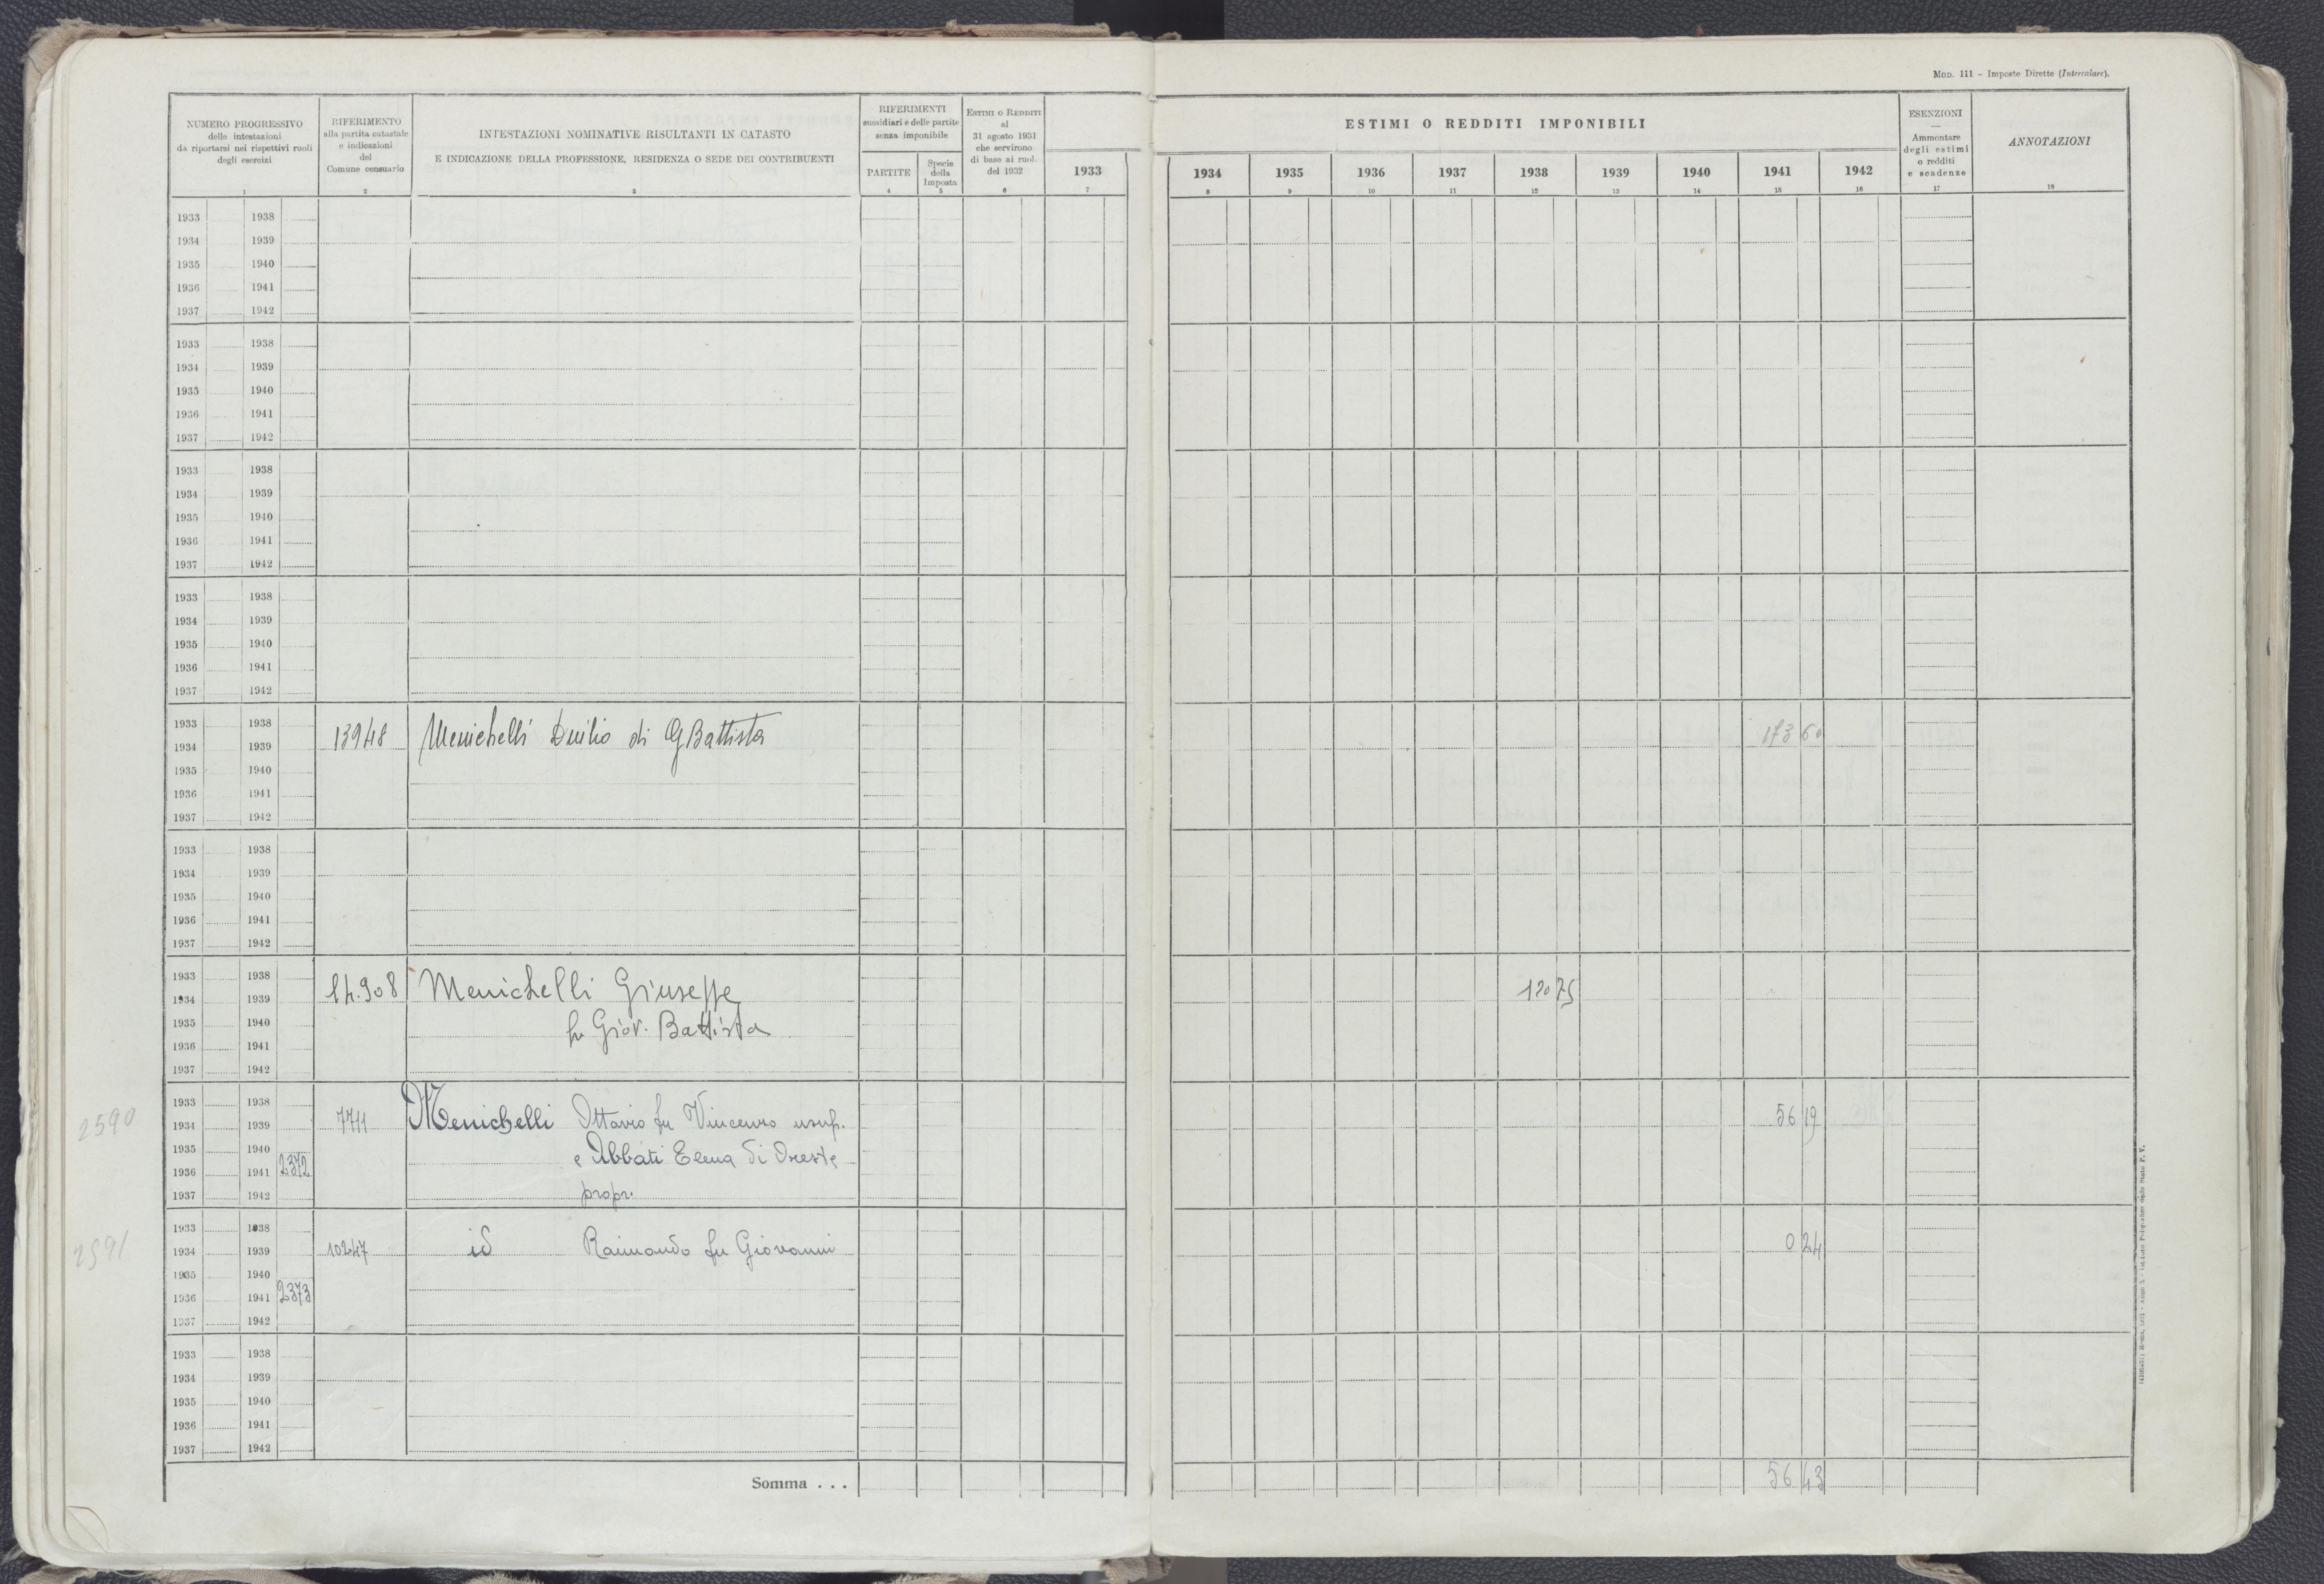 Mod. 111 - Imposte Dirette (Intercalare).
NUMERO PROGRESSIVO
delle intestazioni
da riportarsi nei rispettivi ruoli
degli esercizi
1
RIFERIMENTO
alla partita catastale
e indicazioni
del
Comune censuario
2
INTESTAZIONI NOMINATIVE RISULTANTI IN CATASTO
E INDICAZIONE DELLA PROFESSIONE, RESIDENZA O SEDE DEI CONTRIBUENTI
3
RIFERIMENTI
sussidiari e delle partite
senza imponibile
PARTITE
4
Specie
della
Imposta
5
Estimi o Redditi
al
31 agosto 1931
che servirono
di base ai ruoli
del 1932
6
1933
7
ESTIMI O REDDITI IMPONIBILI
1934 1935 1936 1937 1938 1939 1940 1941 1942
8 9 10 11 12 13 14 15 16
ESENZIONI
Ammontare
degli estimi
o redditi
e scadenze
17
ANNOTAZIONI
18
1933 1938
1934 1939
1935 1940
1936 1941
1937 1942
1933 1938
1934 1939
1935 1940
1936 1941
1937 1942
1933 1938
1934 1939
1935 1940
1936 1941
1937 1942
1933 1938
1934 1939
1935 1940
1936 1941
1937 1942
1933 1938
1934 1939 13948 Menichelli Duilio di GBattista 173 60
1935 1940
1936 1941
1937 1942
1933 1938
1934 1939
1935 1940
1936 1941
1937 1942
1933 1938
1934 1939 14.908 Menichelli Giuseppe 120 75
1935 1940 fu Giov. Battista
1936 1941
1937 1942
1933 1938
2590 1934 1939 7711 Menichelli Ottavio fu Vincenzo usuf. 56 19
1935 1940 e Abbati Elena di Oreste
1936 1941 2372
1937 1942 propr.
1933 1938
2591 1934 1939 10247 id Raimondo fu Giovanni 0 24
1935 1940
1936 1941 2373
1937 1942
1933 1938
1934 1939
1935 1940
1936 1941
1937 1942
Somma . . . 56 43